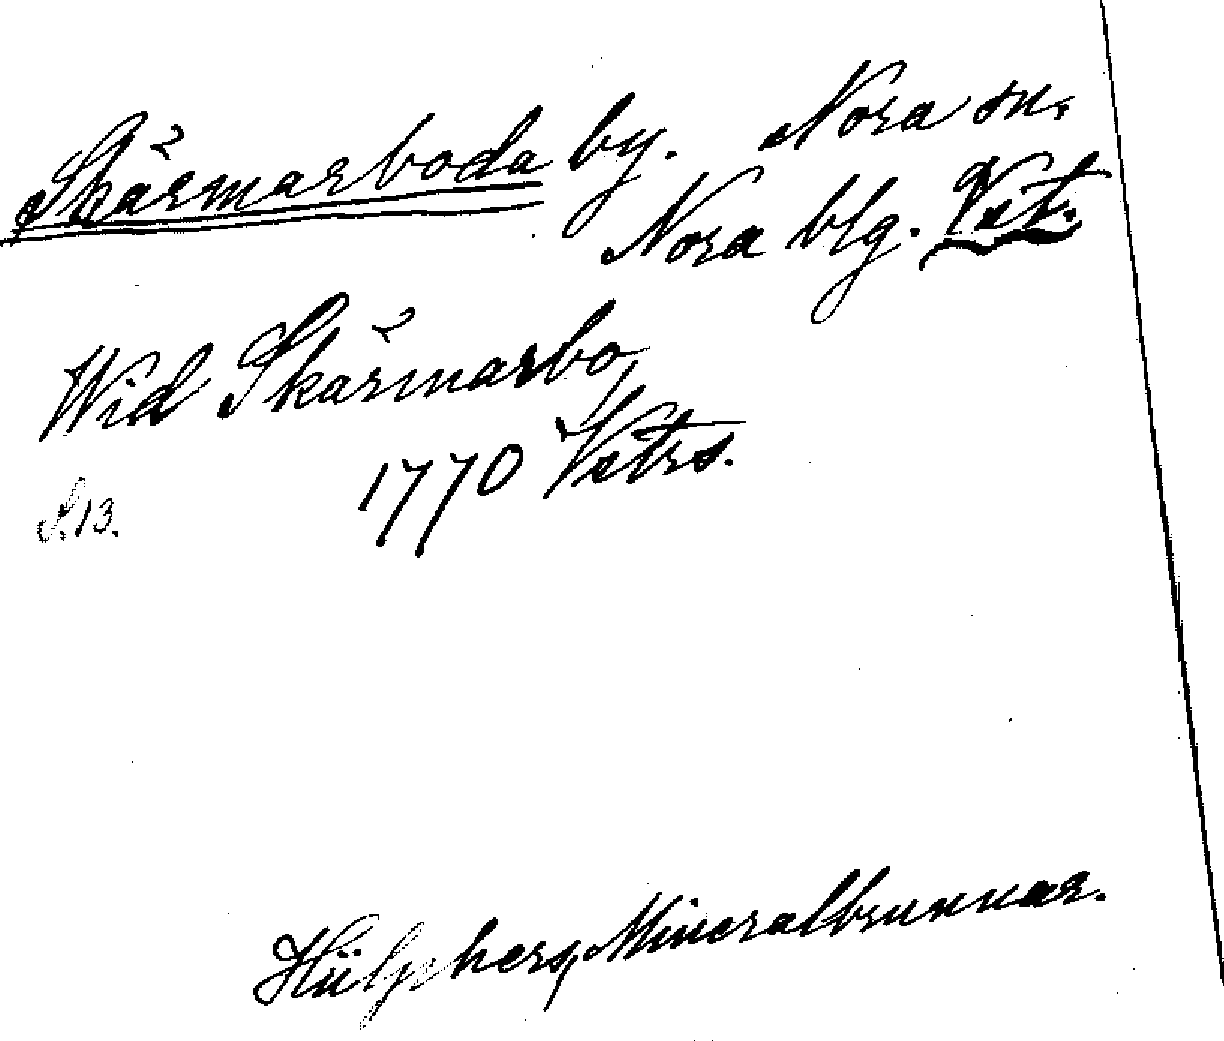 Skärmarboda by. Nora sn.
Nora blg. Vst.
Wid Skärmarbo,
1770 Vstrs.
S. 13.
Hülphers, Mineralbrunnar.